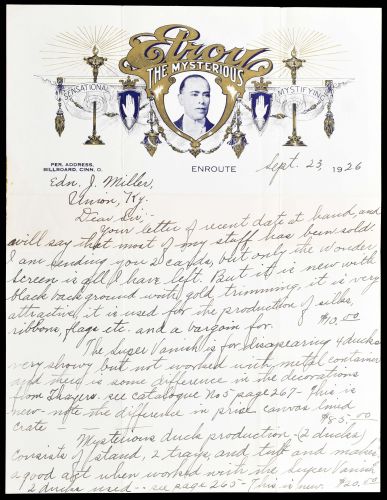 Prout
THE MYSTERIOUS
SENSATIONAL
MYSTIFYING
PER. ADDRESS,
BILLBOARD, CINN, O.
ENROUTE
Sept. 23, 1926
Edn. J. Miller,
Union, Ky.
Dear Sir:-
Your letter of recent date at hand and
will say that most of my stuff has been sold.
I am sending you 2 cards, but only the Wonder
Screen is all I have left. But it is new with
black background with gold trimming, it is very
attractive it is used for the production of silks,
ribbons, flags etc. and a bargain for. $10.00
The Super Vanish is for disappearing 4 ducks
very showy but not worked with metal container
and there is some difference in the decorations
from Thayers. see catalogue No 5 page 267- This is
new- note the difference in price canvas lined
crate - $85.00
Mysterious duck production - (2 ducks)
consists of stand, 2 trays, and tub and makes
a good act when worked with the Super Vanish
2 ducks used -- see page 265 - This is new. $20.00